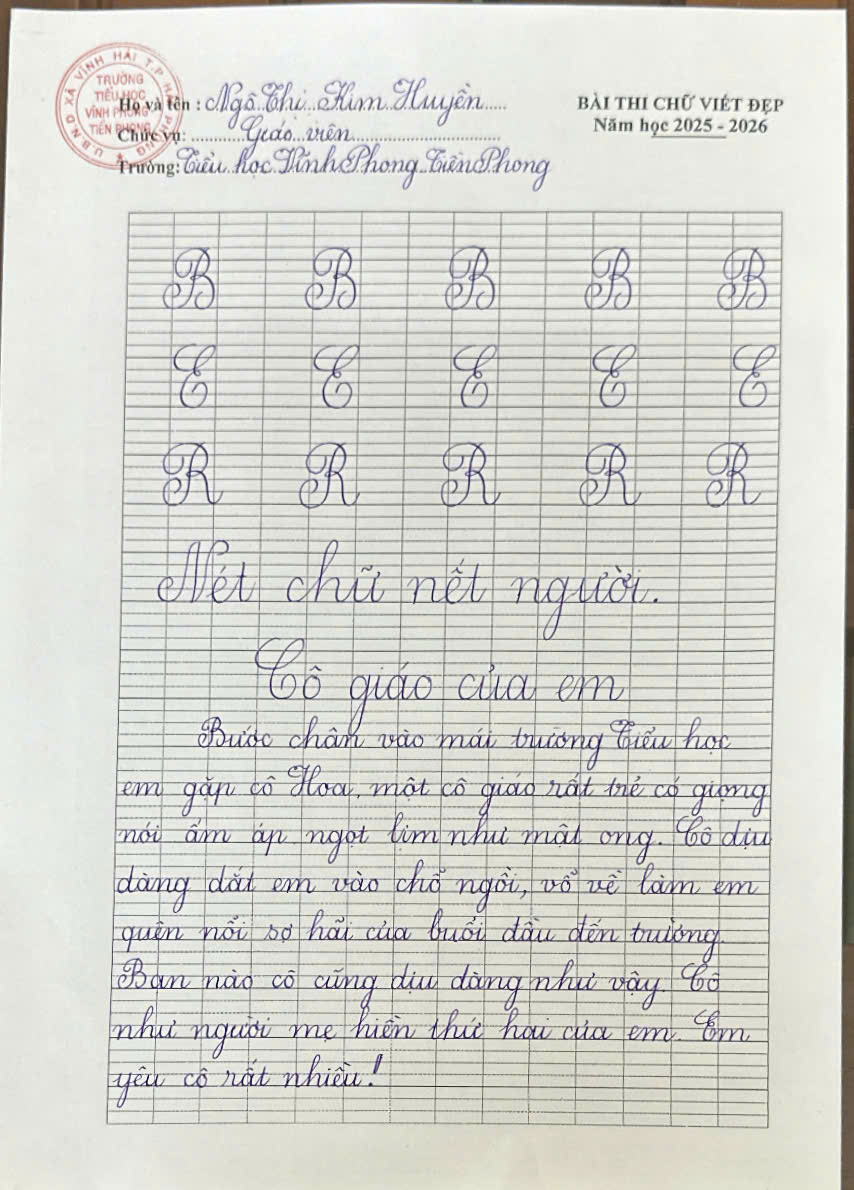 U.B.N.D XÃ VĨNH HẢI T.P HẢI PHÒNG
TRƯỜNG
TIỂU HỌC
VĨNH PHONG
TIỀN PHONG
Họ và tên : Ngô Thị Kim Huyền
Chức vụ: Giáo viên
Trường: Tiểu học Vĩnh Phong Tiền Phong
BÀI THI CHỮ VIẾT ĐẸP
Năm học 2025 - 2026
B B B B B
E E E E E
R R R R R
Nét chữ nết người.
Cô giáo của em
Bước chân vào mái trường Tiểu học
em gặp cô Hoa, một cô giáo rất trẻ có giọng
nói ấm áp ngọt lịm như mật ong. Cô dịu
dàng dắt em vào chỗ ngồi, vỗ về làm em
quên nổi sợ hãi của buổi đầu đến trường.
Bạn nào cô cũng dịu dàng như vậy. Cô
như người mẹ hiền thứ hai của em. Em
yêu cô rất nhiều!